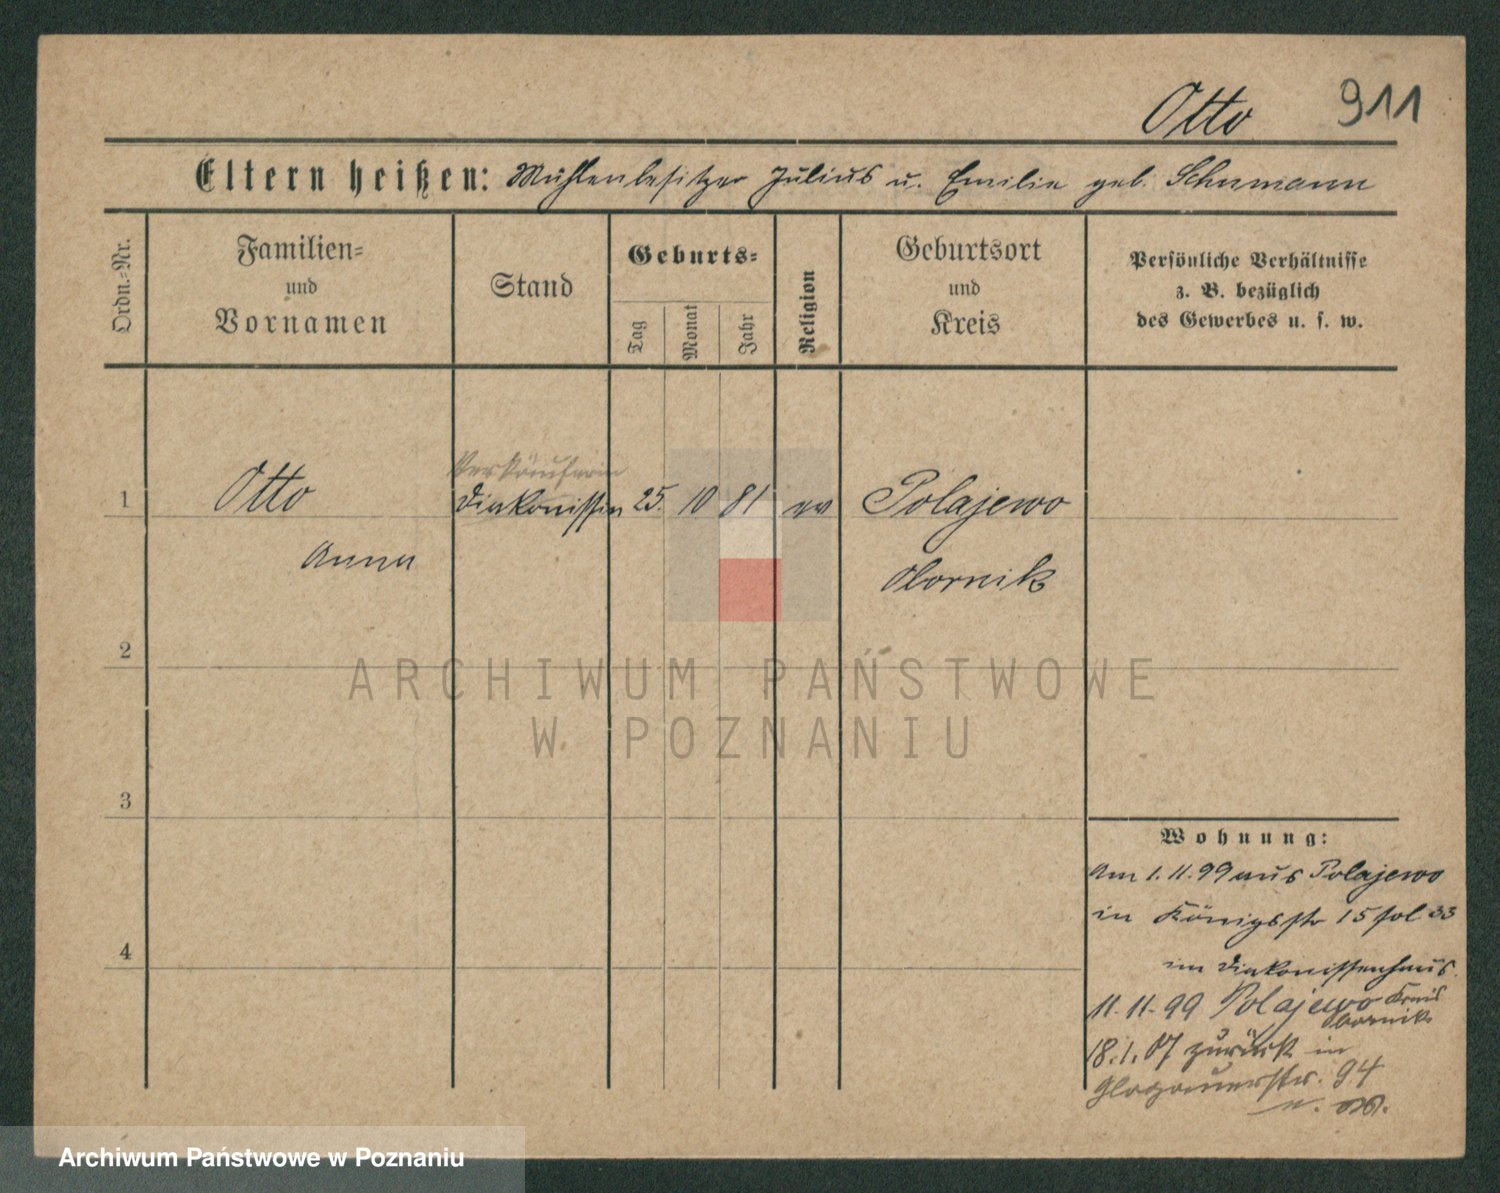 Otto 911
Eltern heißen: Mühlenbesitzer Julius u. Emilie geb. Schumann
Ordn.-Nr.
Familien-
und
Vornamen
Stand
Geburts-
Tag
Monat
Jahr
Religion
Geburtsort
und
Kreis
Persönliche Verhältnisse
z. B. bezüglich
des Gewerbes u. s. w.
Verkäuferin
1 Otto Diakonissin 25. 10 81 ev Polajewo
Anna Obornik
2
ARCHIWUM PAŃSTWOWE
W POZNANIU
3
Wohnung:
Am 1. 11. 99 aus Polajewo
in Königsstr 15 fol 33
4
im Diakonissenhaus.
11. 11. 99 Polajewo Kreis
Obornik
18. 1. 07 zurück in
Glogauerstr. 94
Archiwum Państwowe w Poznaniu